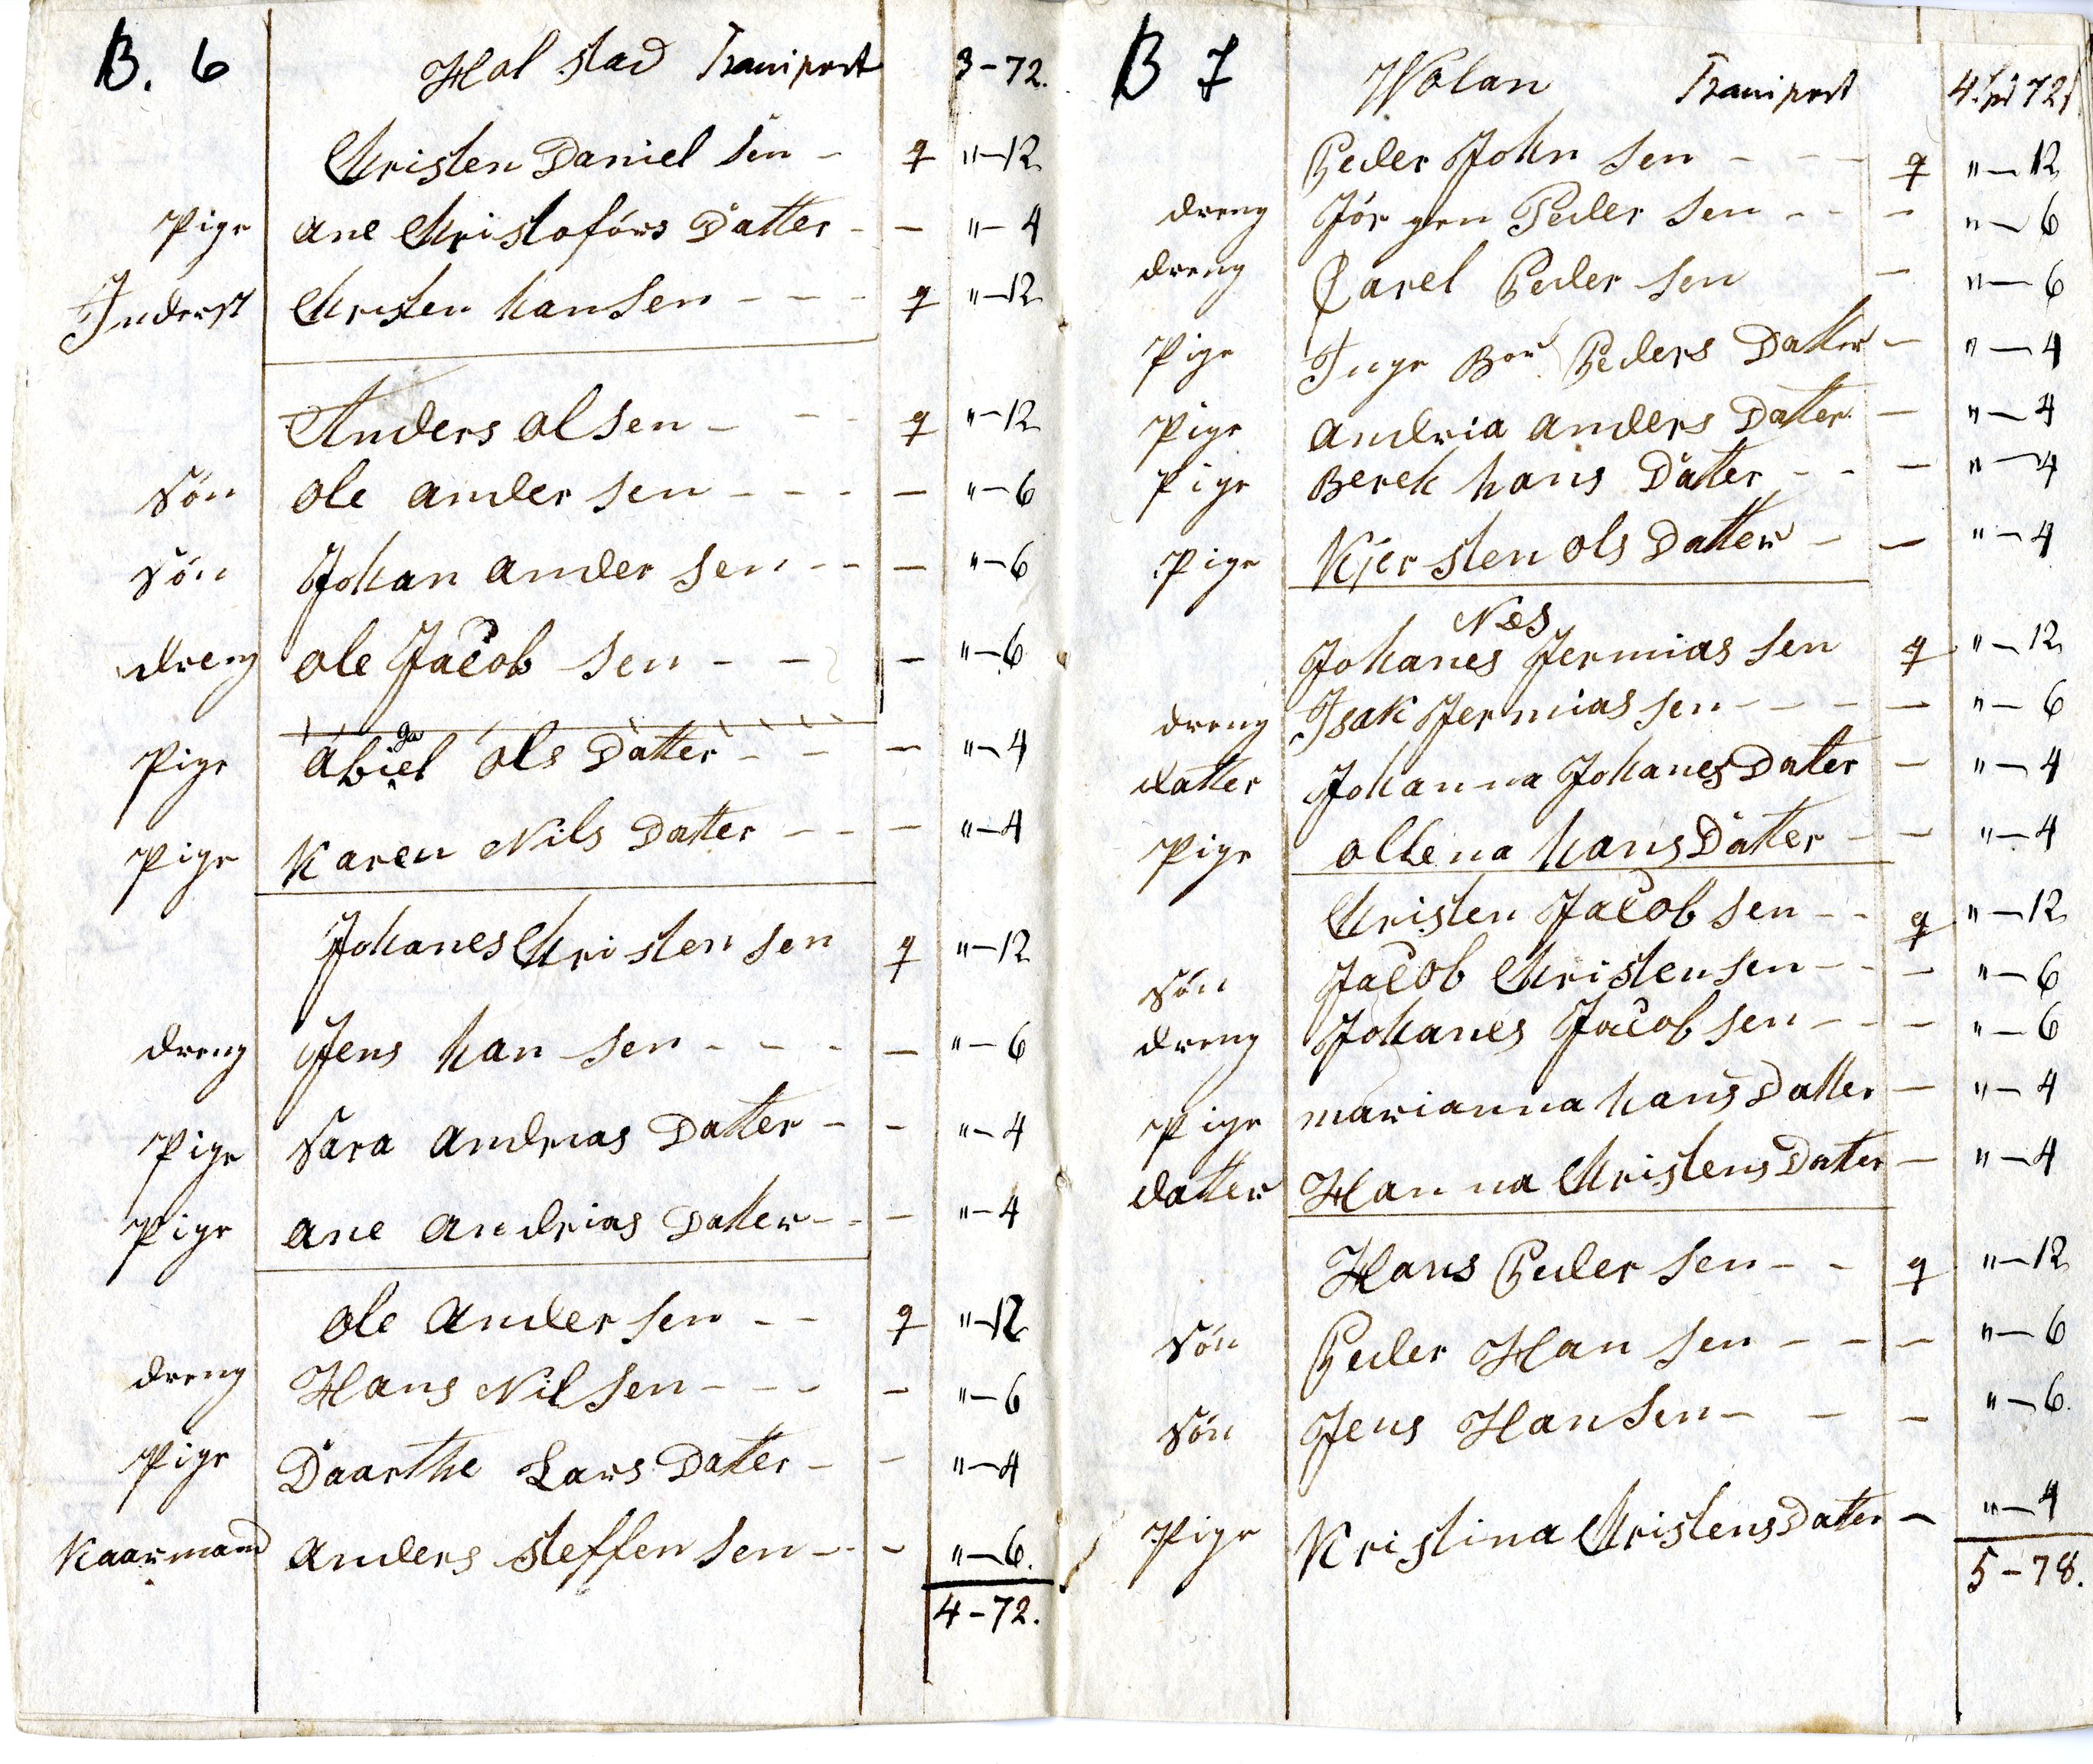 B. 6 Hol stad Transport 3-72.
Christen Daniel sen - q "-12
Pige ane Christofórs Datter - - "-4
Inderst Christen hansen - - - q "-12
Anders olsen - - - q "-12
Sön ole ander sen - - - - "-6
Sön Johan ander sen - - - "-6
dreng ole Jacob sen - - - "-6
Pige ols Datter - - - "-4
Pige Karen Nils Datter - - - "-4
Johanes Christen sen q "-12
dreng Jens han sen - - - - "-6
Pige Sara andreas Datter - - "-4
Pige ane andrias Datter - - - "-4
ole ander sen - - q "-12
dreng Hans Nilsen - - - - "-6
Pige Daarthe Lars Datter - - "-4
Kaarmand anders steffen sen - - - "-6.
4-72.
B 7 Wolan Transport 4 72
Peder John sen - - - q "-12
dreng Jör gen Peder sen - - - "-6
dreng Carel Peder sen - "-6
Pige Inge Bor Peders Datter - "-4
Pige andria anders Datter - "-4
Pige Berek hans Datter - - - "-4
Pige Kjer sten ols Datter - - "-4
Nes
Johanes Jermias sen q "-12
dreng Isak Jermias sen - - - - "-6
datter Johanna Johanes Dater - "-4
Pige ollena hans Datter - - "-4
Christen Jacob sen - - q "-12
Sön Jacob Christensen - - - "-6
dreng Johanes Jacob sen - - - "-6
Pige marianna hans Datter - "-4
datter Hanna Christens Dater - "-4
Hans Peder sen - - q "-12
Sön Peder Han sen - - - "-6
Sön Jens Hansen - - - "-6.
Pige Kristina Christens Dater - "-4
5-78.